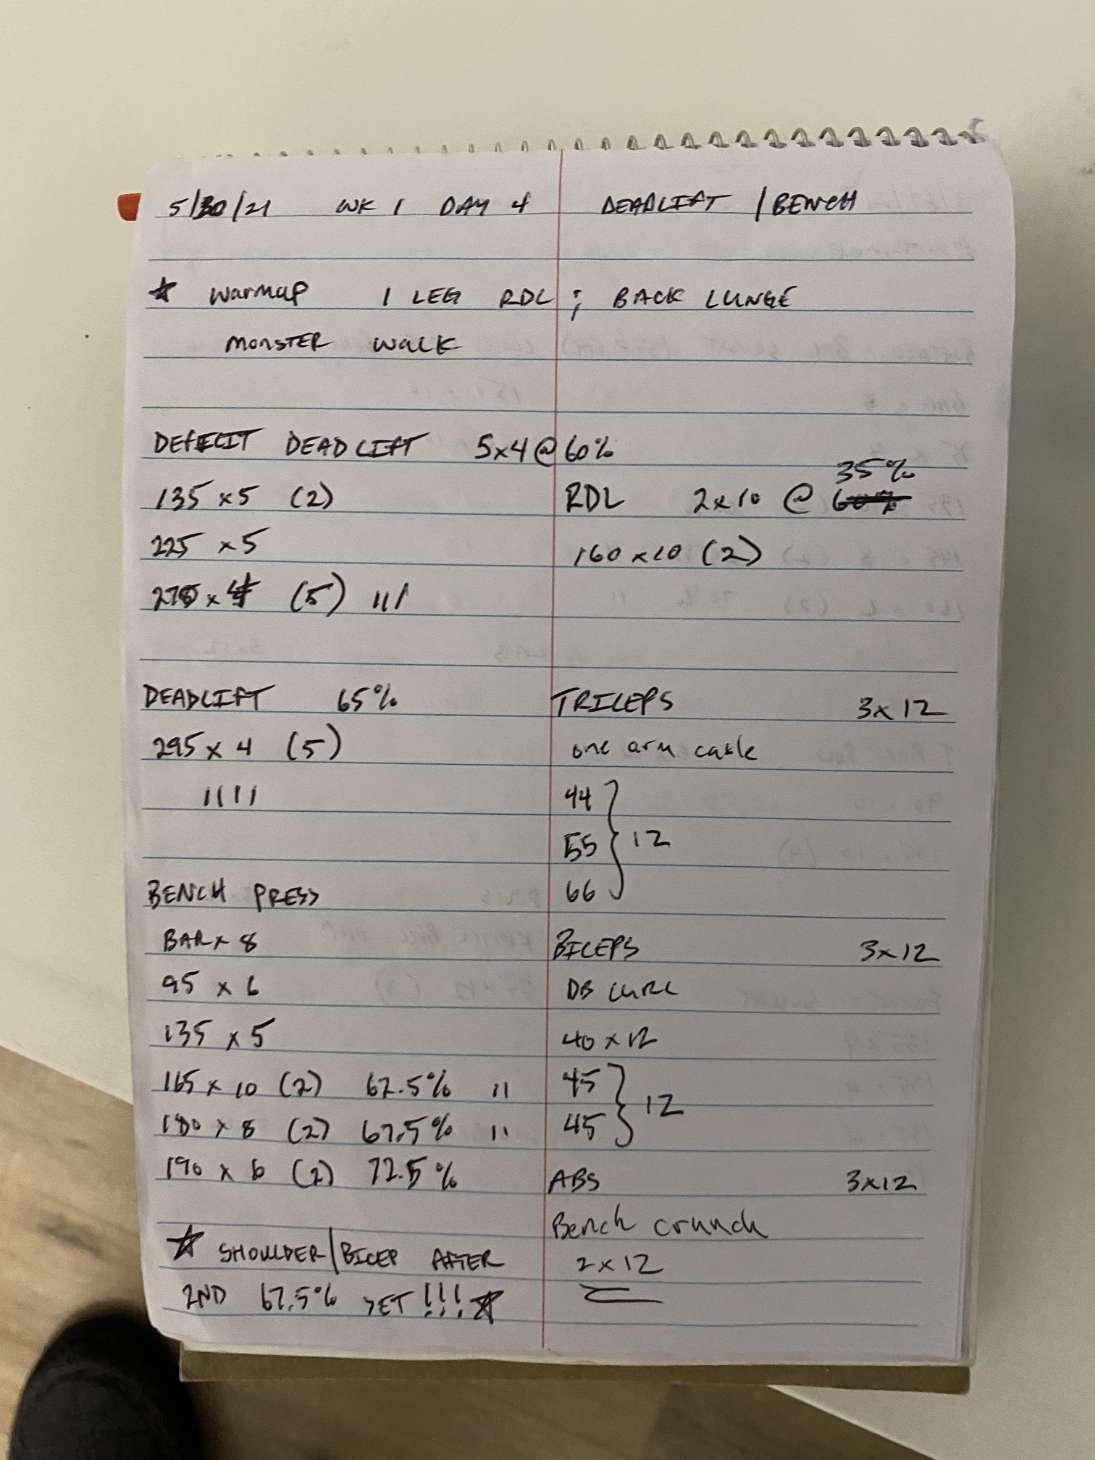 5/30/21 WK 1 DAY 4 DEADLIFT / BENCH
☆ Warmup 1 LEG RDL ; BACK LUNGE
MONSTER WALK
DEFICIT DEADLIFT 5x4 @ 60%
135 x 5 (2)
225 x 5
275 x 4 (5) III
DEADLIFT 65%
295 x 4 (5)
IIII
BENCH PRESS
BAR x 8
95 x 6
135 x 5
165 x 10 (2) 62.5% II
180 x 8 (2) 67.5% II
190 x 6 (2) 72.5%
☆ SHOULDER/BICEP AFTER
2ND 67.5% SET !!! ☆
35%
RDL 2x10 @ 60%
160 x 10 (2)
TRICEPS 3x12
one arm cable
44
55 } 12
66
BICEPS 3x12
DB CURL
40 x 12
45
45 } 12
ABS 3x12
Bench crunch
2 x 12